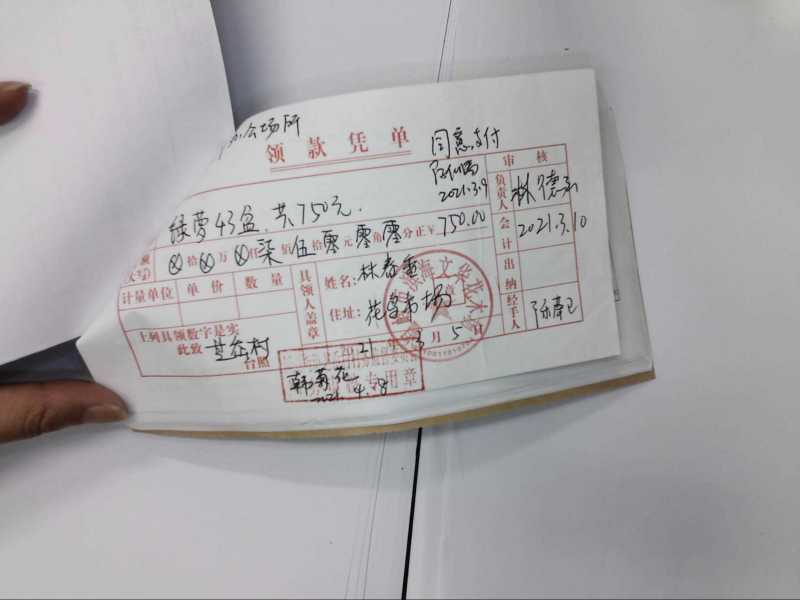 公场所
领款凭单
同意支付
2021.3.9
绿萝43盆,共750元.
拾 万 仟 柒 佰 伍 拾 零 元 零 角 零 分正￥750.00
计量单位 单价 数量
具领人盖章
姓名:林春
住址:花鸟市场
上列具领数字是实
此致 村 台照
2021年3月5日
审核
负责人 林德
会计 2021.3.10
出纳
经手人 陈
韩菊花
2021.4.8
专用章